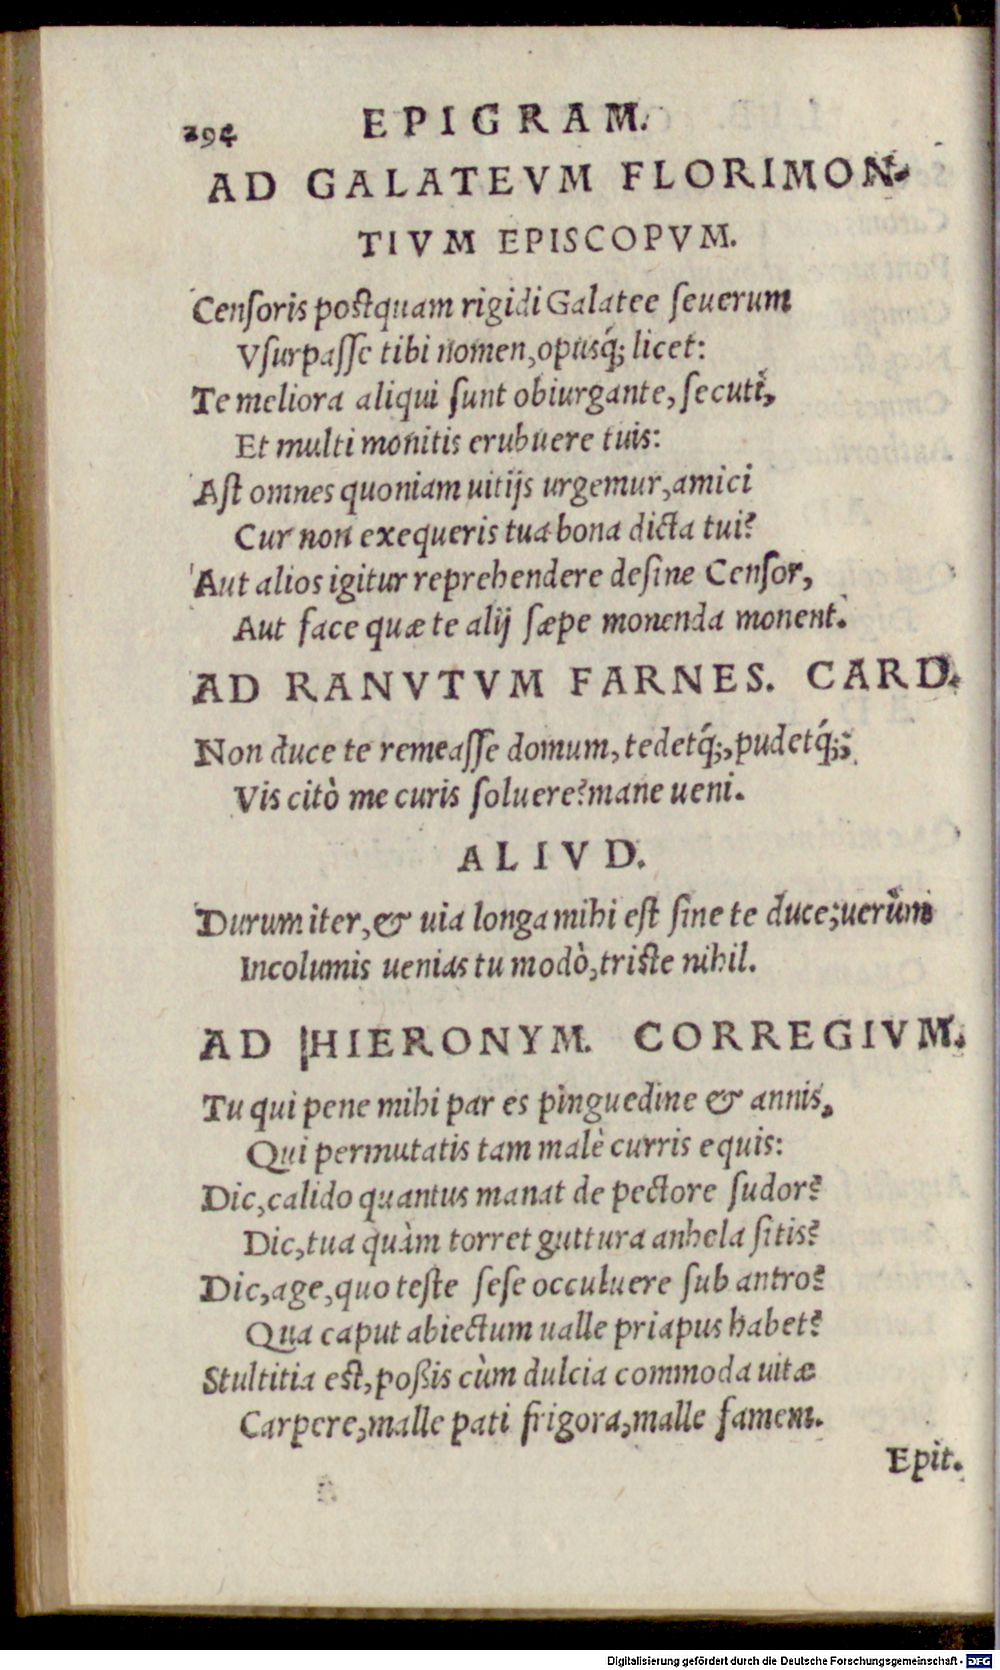 294 EPIGRAM.
AD GALATEVM FLORIMON-
TIVM EPISCOPVM.
Censoris postquam rigidi Galatee seuerum
Vsurpasse tibi nomen, opusq́; licet:
Te meliora aliqui sunt obiurgante, secuti,
Et multi monitis erubuere tuis:
Ast omnes quoniam uitijs urgemur, amici
Cur non exequeris tua bona dicta tui?
Aut alios igitur reprehendere desine Censor,
Aut face quæ te alij sæpe monenda monent.
AD RANVTVM FARNES. CARD.
Non duce te remeasse domum, tedetq́;, pudetq́;;
Vis citò me curis soluere? mane ueni.
ALIVD.
Durum iter, & uia longa mihi est sine te duce; uerùm
Incolumis uenias tu modò, triste nihil.
AD HIERONYM. CORREGIVM.
Tu qui pene mihi par es pinguedine & annis,
Qui permutatis tam malè curris equis:
Dic, calido quantus manat de pectore sudor?
Dic, tua quàm torret guttura anhela sitis?
Dic, age, quo teste sese occuluere sub antro?
Qua caput abiectum ualle priapus habet?
Stultitia est, poßis cùm dulcia commoda uitæ
Carpere, malle pati frigora, malle famem.
Epit.
Digitalisierung gefördert durch die Deutsche Forschungsgemeinschaft - DFG